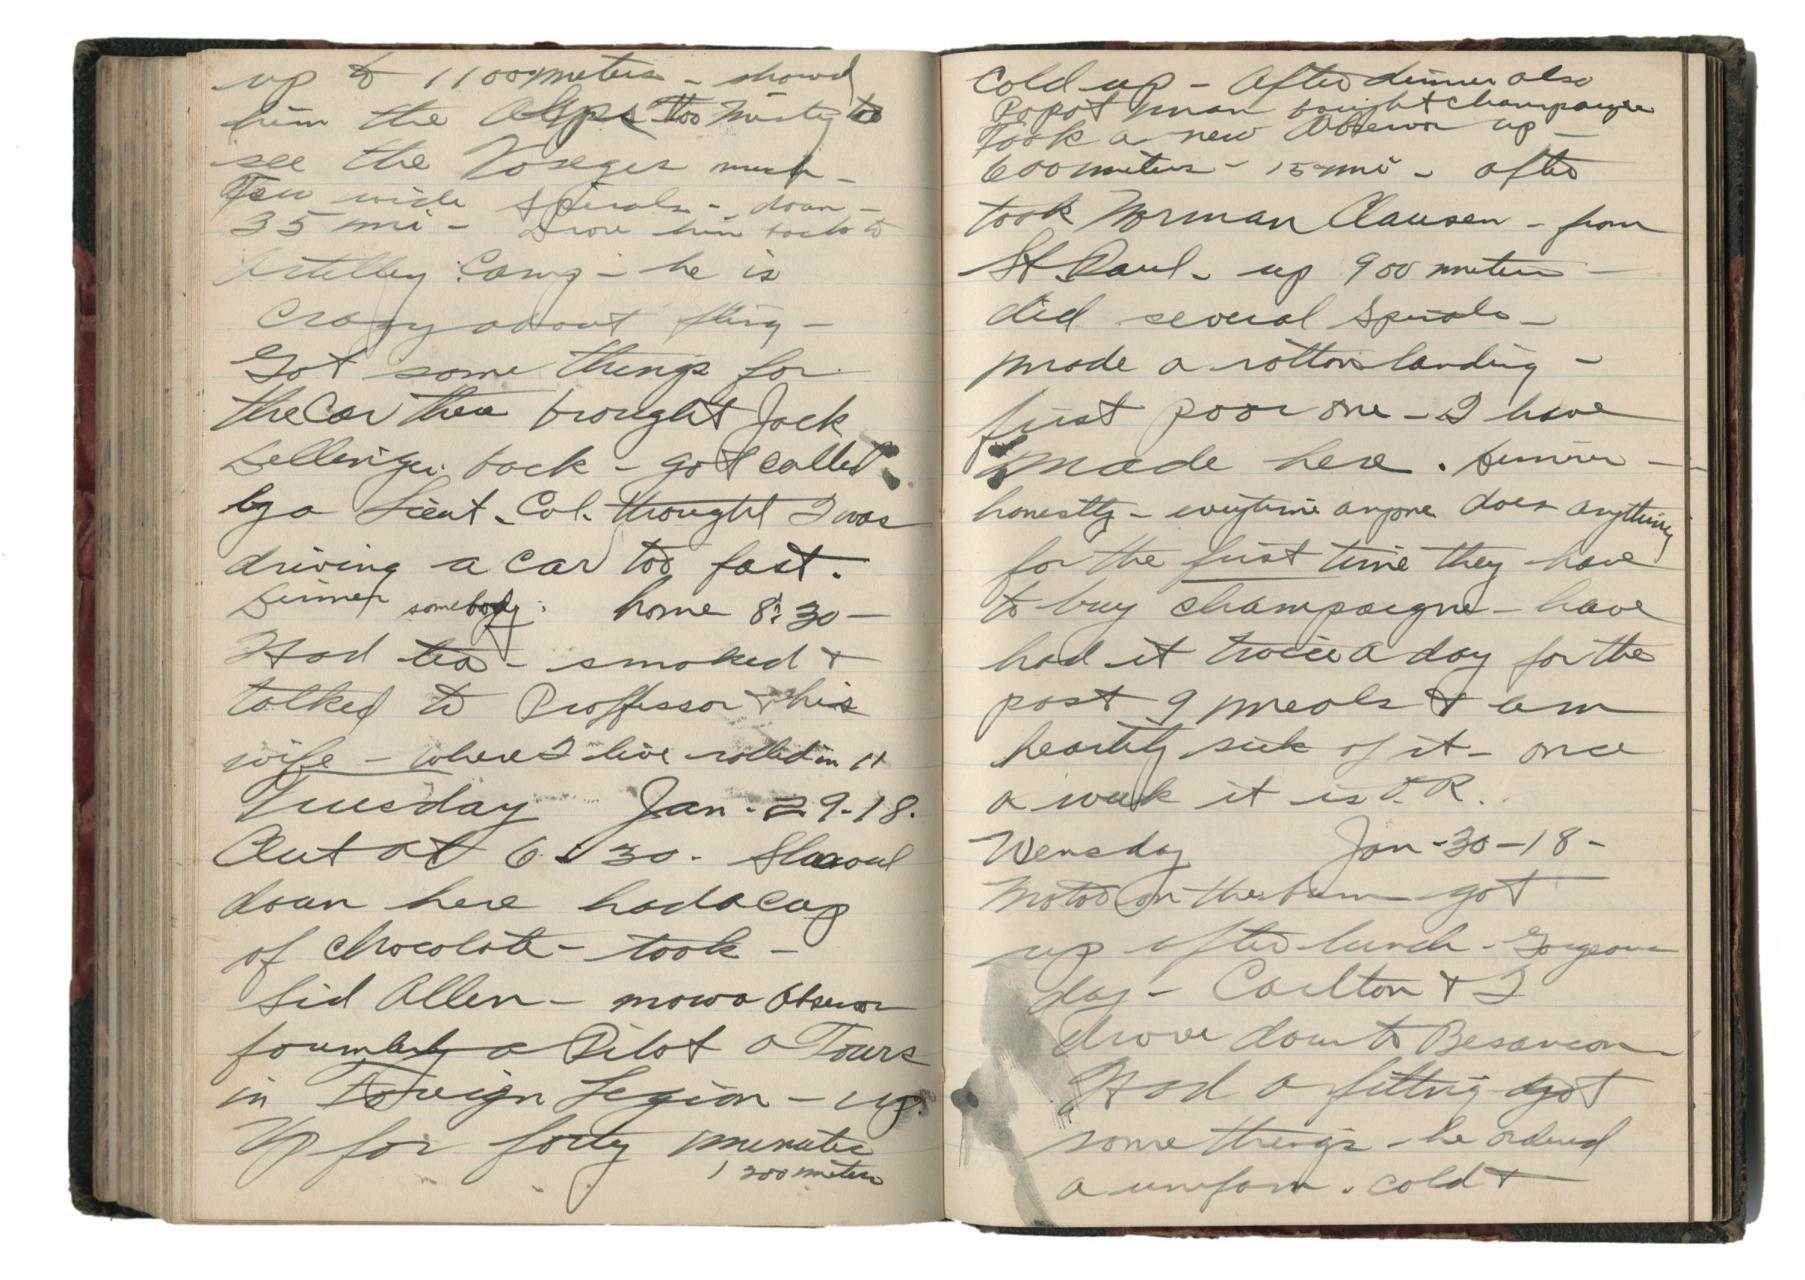 up to 1100 meters - showed
him the Alps too misty to
see the Voseges much -
Few wide spirals - down -
35 mi - Drove him back to
Artillery Camp - he is
crazy about fling -
Got some things for
the Car then brought Jack
Dellinger back - got called
by a Lieut. Col. thought I was
driving a car too fast.
Dinner somebody: home 8:30 -
Had tea - smoked +
talked to Proffessor + his
wife - where I live rolled in 11
Tuesday Jan. 29-18.
Out at 6:30.
down here had a cup
of chocolate - took -
Sid Allen - now a Observor
a Pilot a Tours
in Foreign Legion - up
Up for forty minutes
1200 meters
Cold up - After dinner also
Popot man bought champaigne
took a new Observor up -
600 meters - 15 mi - after
took Norman Clausen - from
St. Paul - up 900 meters -
did several spirals -
made a rotton landing -
first poor one - I have
made here. Dinner -
honestly - everytime anyone does anything
for the first time they have
to buy champaigne - have
had it twice a day for the
past 9 meals + am
heartily sick of it - once
a week it is O.K.
Wensday Jan-30-18-
Motor on the bum - got
up after lunch - Gorgeous
day - Carlton + I
drove down to Besancon
Had a fitting + got
some things - he ordered
a uniform. cold +